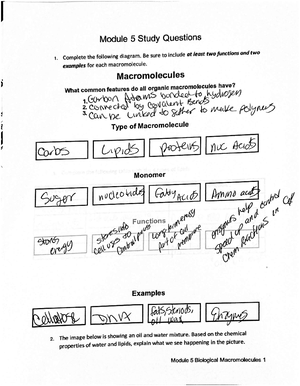 Module 5 Study Questions
1. Complete the following diagram. Be sure to include at least two functions and two
examples for each macromolecule.
Macromolecules
What common features do all organic macromolecules have?
1. Carbon Atoms bonded to hydrogen
2 Connected by Covalent bonds
3 Can be linked together to make polymers
Type of Macromolecule
Carbs Lipids Proteins Nuc Acids
Monomer
Sugar nucleotides Fatty Acids Amino acids
Functions
stores energy
stores info
long term energy
part of cell membrane
enzymes help control
speed up and
chem reactions in Cell
Examples
Cellulose DNA fats, steroids, Enzymes
2. The image below is showing an oil and water mixture. Based on the chemical
properties of water and lipids, explain what we see happening in the picture.
Module 5 Biological Macromolecules 1